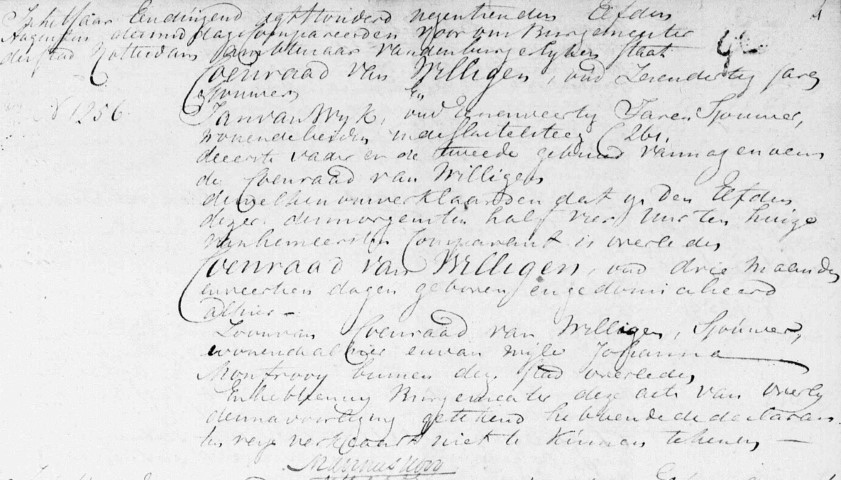 In het Jaar Eenduizend achthonderd negentienden Elfden
Augustus des middags compareerden voor ons Burgemeester
der stad Rotterdam Ambtenaar van den burgerlyken staat
Coenraad van Willigen, oud Jaren
sjouwer en
N 1256 Jan van Wyk, oud Eenenveertig Jaren Sjouwer,
wonende beiden in de Sleutelsteeg C 261,
de eerste vader en de tweede gebuur van nagenoemde
Coenraad van Willigen
dewelke ons verklaarden dat op den Elfden
dezer des morgens ten half vier Uur ten huize
van hem eersten Comparant is overleden
Coenraad van Willigen, oud drie Maanden
en veertien dagen geboren en gedomicilieerd
alhier —
Zoon van Coenraad van Willigen, Sjouwer,
wonende alhier en van wyle Johanna
Monfrooy binnen deze stad overleden
En hebben wy Burgemeester deze acte van overly
den na voorlezing getekend hebbende de declaran
ten verklaard niet te kunnen tekenen —